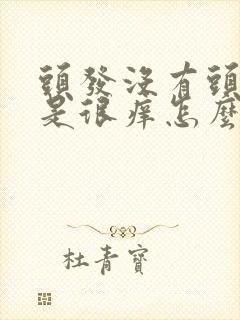 頭發沒有頭
是很痒怎麼
杜青寶